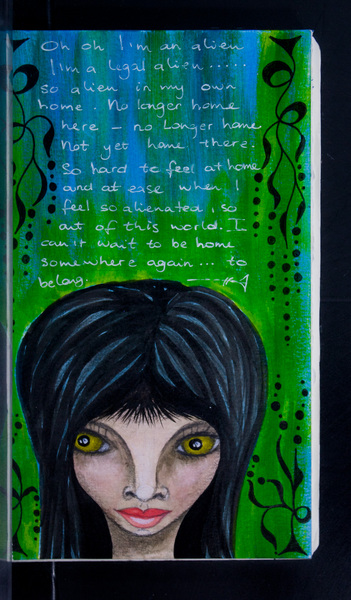 Oh oh I'm an alien
I'm a legal alien......
so alien in my own
home. No longer home
here – no longer home
Not yet home there.
So hard to feel at home
and at ease when I
feel so alienated, so
out of this world. I
can't wait to be home
somewhere again... to
belong.